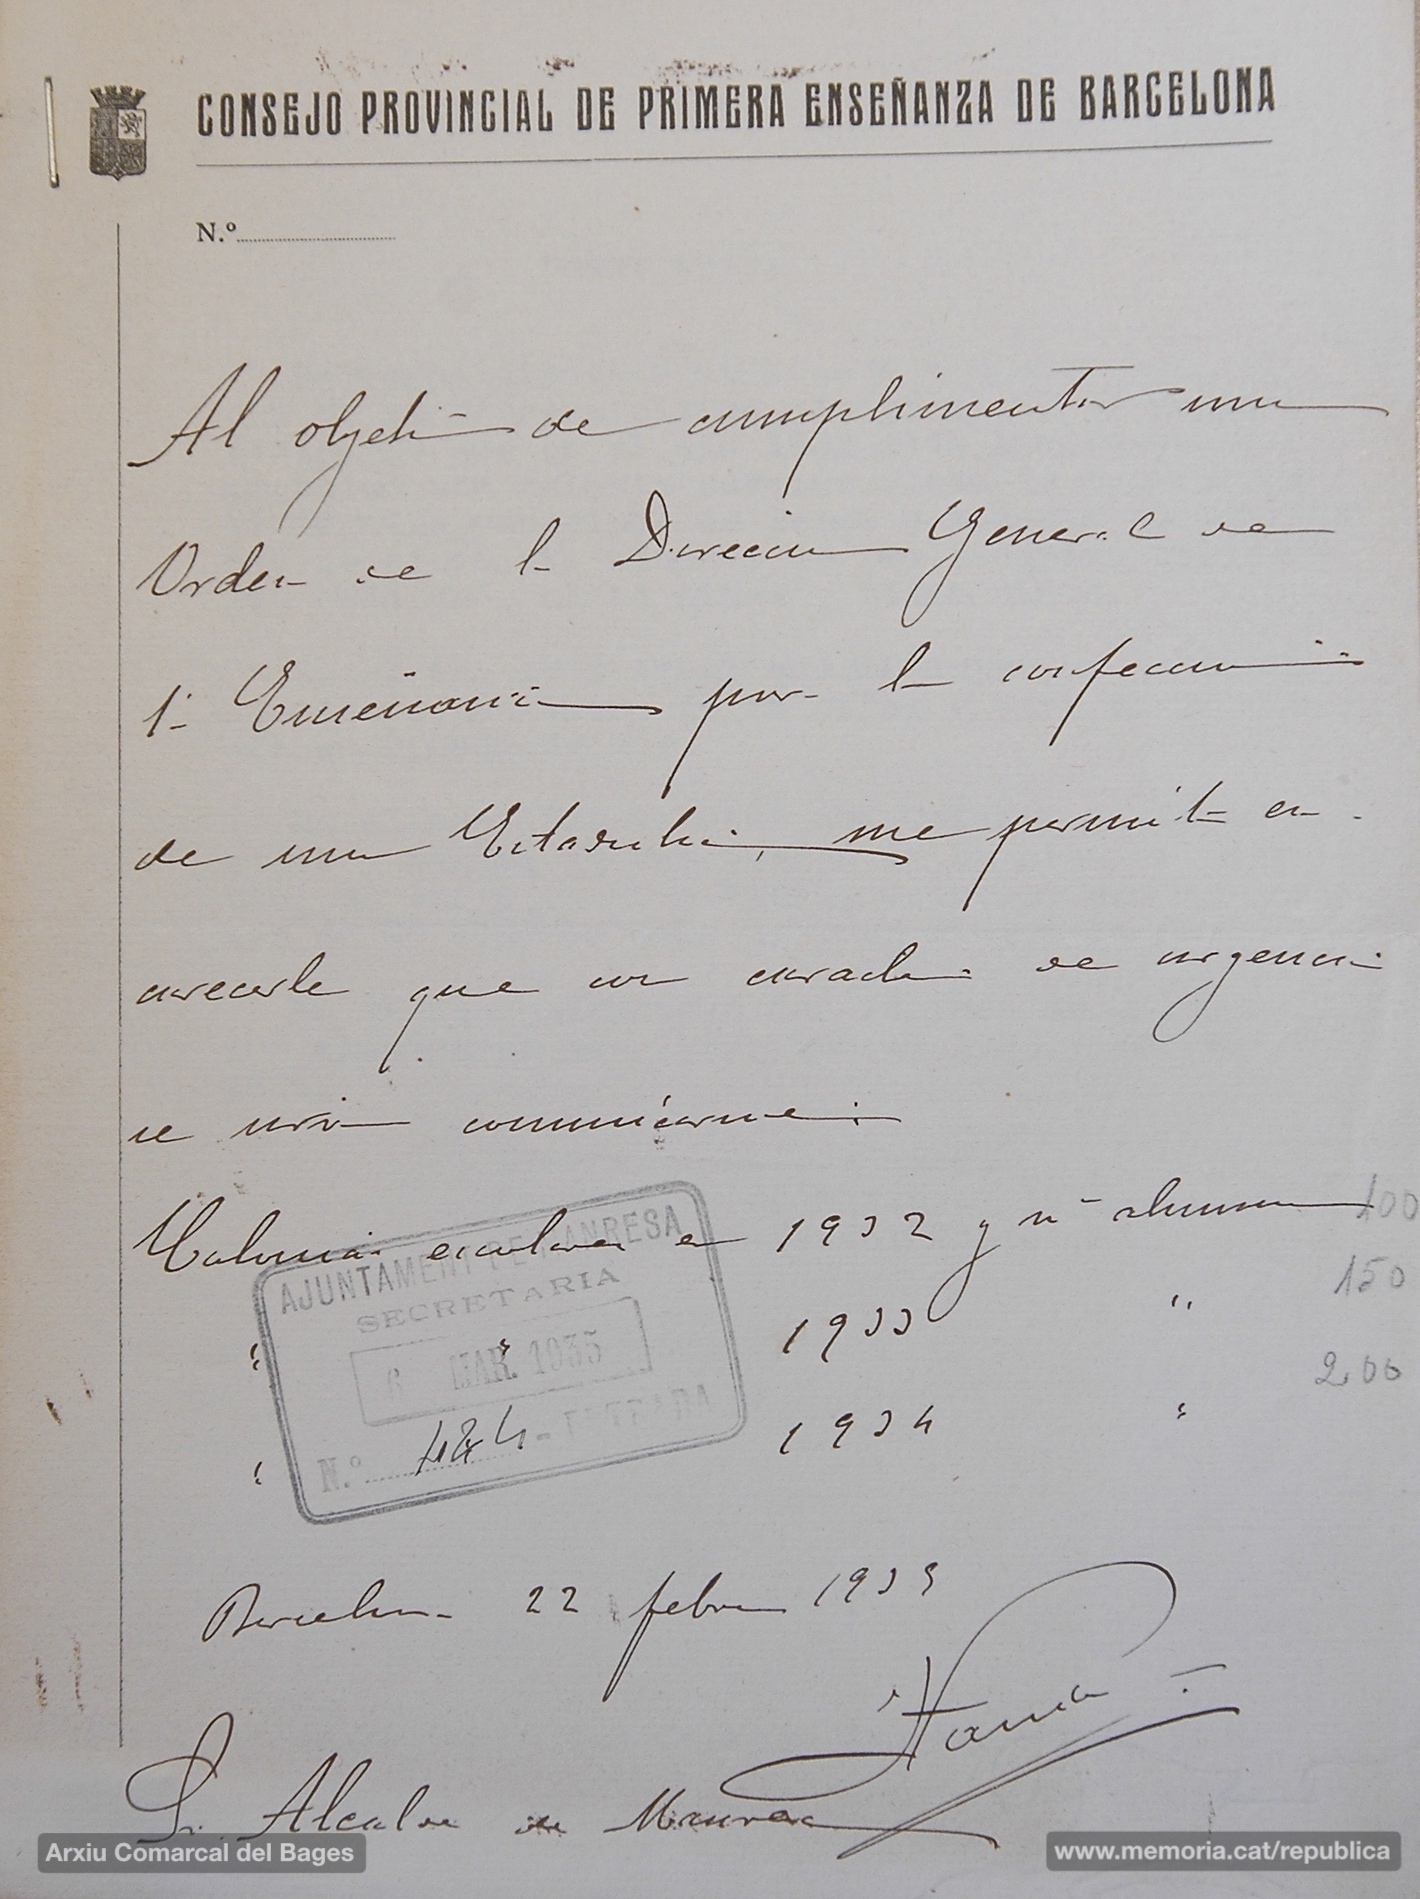 CONSEJO PROVINCIAL DE PRIMERA ENSEÑANZA DE BARCELONA
N.º
Al objeto de cumplimentar una
Orden de la Dirección General de
1ª Enseñanza por la confección
de una Estadística, me permito en-
carecerle que con carácter de urgencia
se sirva comunicarme:
Colonias escolares en 1932 y nº alumnos 100
" " 1933 " 150
" 1934 " 200
AJUNTAMENT DE MANRESA
SECRETARIA
6 MAR. 1935
N.º 484 - ENTRADA
Barcelona 22 febrero 1935
Sr. Alcalde de Manresa
Arxiu Comarcal del Bages
www.memoria.cat/republica